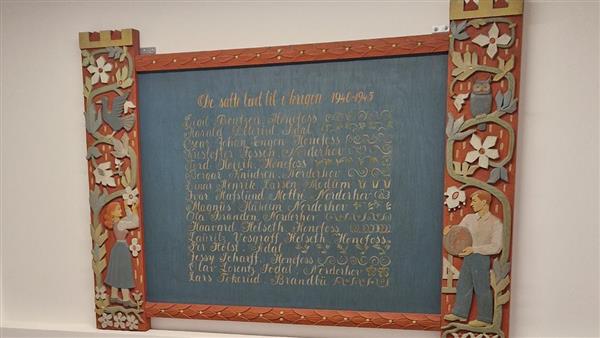 De satte livet til i krigen 1940-1945
Einil Bentzen, Hønefoss
Harald Ådal
Oscar Johan Engen Hønefoss
Kristoffer Fossen Norderhov
Hønefoss
Knudsen, Norderhov
Einar Henrik Larsen Modum
Ivar Hafslund Norderhov
Magnus Norderhov
Ola Stranden, Norderhov
Haavard Helseth, Hønefoss
Lauritz Vosgraff Helseth, Hønefoss.
Per Holst Ådal
Jessy Scharff, Hønefoss
Olav Lorentz Sodal, Norderhov
Lars Tokerud, Brandbu